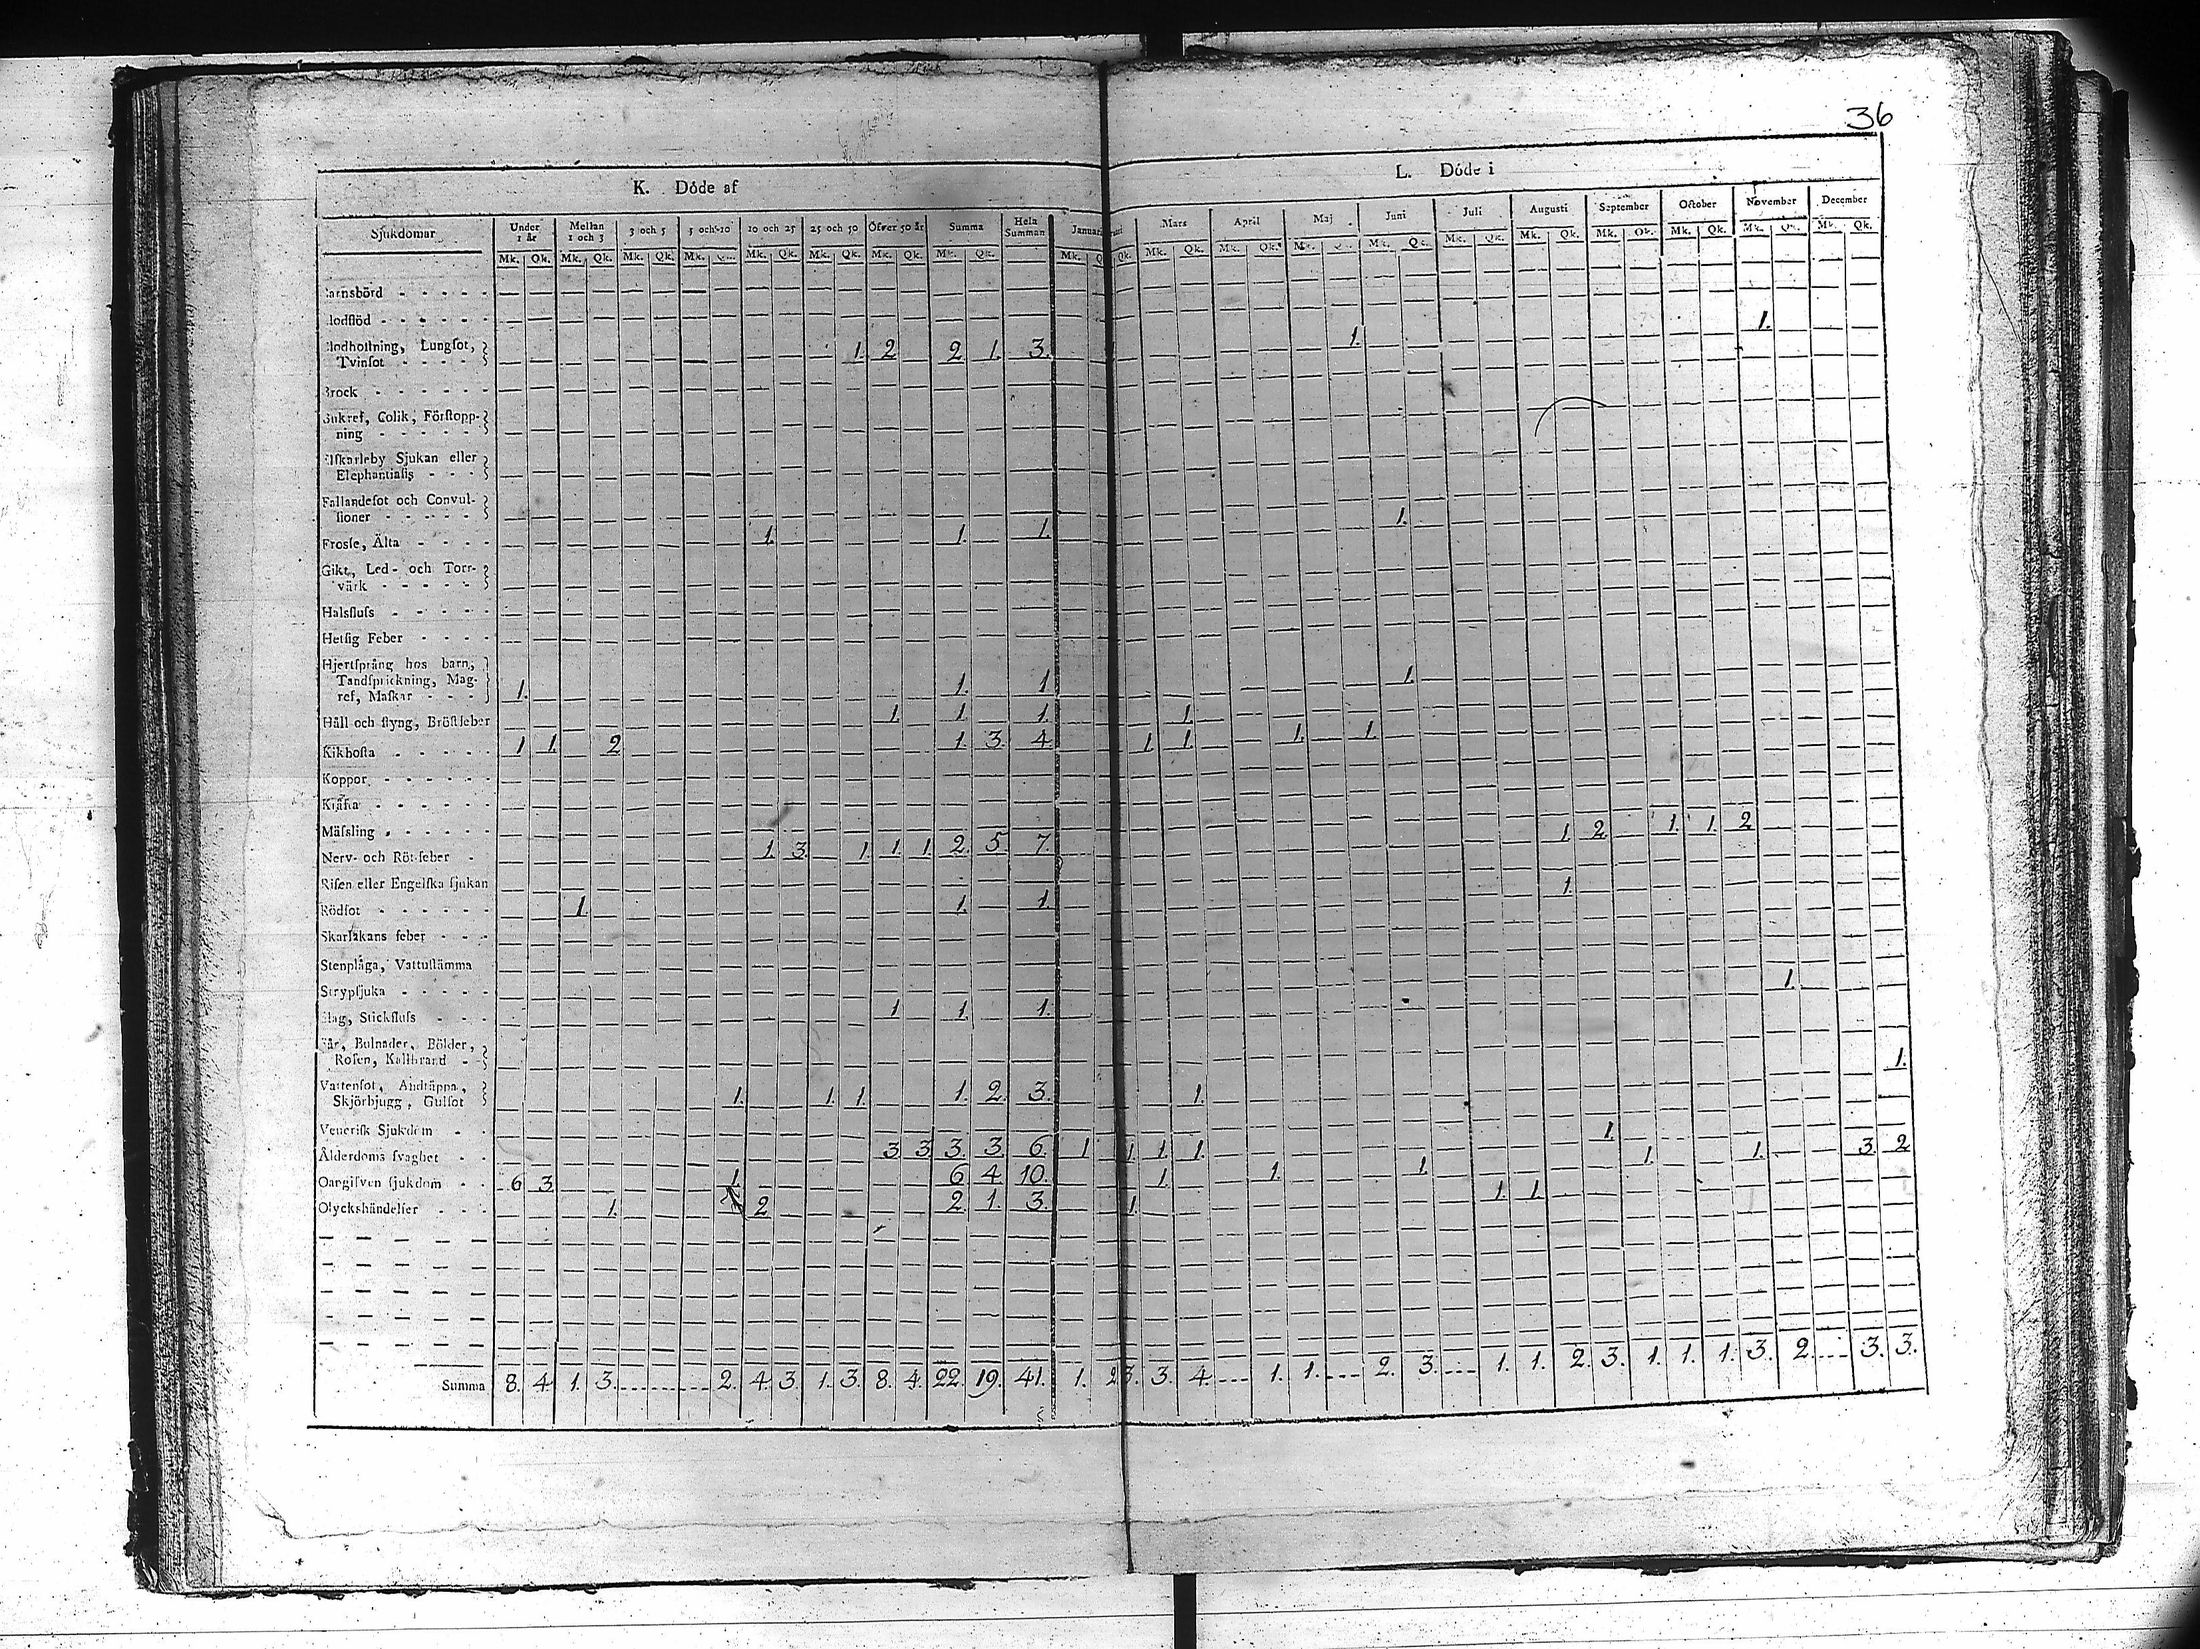 36
K. Döde af
L. Döde i
Sjukdomar Under 1 år Mellan 1 och 3 3 och 5 5 och 10 10 och 25 25 och 50 Öfver 50 år Summa Hela Summan Januari Mars April Maj Juni Juli Augusti September October November December
Mk. Qk. Mk. Qk. Mk. Qk. Mk. Qk. Mk. Qk. Mk. Qk. Mk. Qk. Mk. Qk. Mk. Qk. Mk. Qk. Mk. Qk. Mk. Qk. Mk. Qk. Mk. Qk. Mk. Qk. Mk. Qk. Mk. Qk. Mk. Qk. Mk. Qk.
arnsbörd - - - - -
lodflöd - - - - - -
lodhostning, Lungsot,
Tvinsot - - - - 1. 2 2 1. 3. 1. 1.
Brock - - - - -
Bukref, Colik, Förstopp-
ning - - - - -
Elfkarleby Sjukan eller
Elephantiasis - - -
Fallandesot och Convul-
sioner - - - - -
Frossa, Älta - - - - 1. 1. 1. 1.
Gikt, Led- och Torr-
värk - - - - -
Halsfluss - - - - -
Hetsig Feber - - - -
Hjertsprång hos barn,
Tandsprickning, Mag-
ref, Maskar - - - 1. 1. 1 1.
Håll och styng, Bröstfeber 1. 1. 1. 1.
Kikhosta - - - - - 1 1. 2 1. 3. 4. 1. 1. 1. 1.
Koppor - - - - - -
Kräfta - - - - - -
Mässling - - - - - -
Nerv- och Rötfeber - 1. 3. 1. 1. 1. 2. 5. 7. 1. 2. 1. 1. 2
Risen eller Engelska sjukan
Rödsot - - - - - - 1. 1. 1. 1.
Skarlakans feber - - -
Stenplåga, Vattustämma
Strypsjuka - - - - -
lag, Stickfluss - - - 1 1. 1. 1.
år, Bulnader, Bölder,
Rosen, Kallbrand - -
Vattensot, Andtäppa,
Skjörbjugg, Gulsot 1. 1. 1. 1. 2. 3. 1. 1.
Venerisk Sjukdom - -
Ålderdoms svaghet - - 3 3. 3. 3. 6. 1 1. 1. 1. 1. 1. 1. 3. 2
Oangifven sjukdom - - 6 3. 1. 6 4. 10. 1. 1. 1. 1. 1.
Olyckshändelser - - - 1. 2 2. 1. 3. 1.
Summa 8. 4. 1. 3. 2. 4. 3. 1. 3. 8. 4. 22. 19. 41. 1. 2 3. 3. 4. 1. 1. 2. 3. 1. 1. 2. 3. 1. 1. 1. 3. 2. 3. 3.